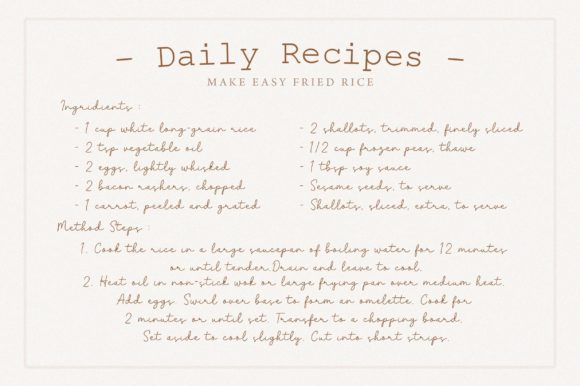 - Daily Recipes -
MAKE EASY FRIED RICE
Ingridients :
- 1 cup white long-grain rice
- 2 tsp vegetable oil
- 2 eggs, lightly whisked
- 2 bacon rashers, chopped
- 1 carrot, peeled and grated
- 2 shallots, trimmed, finely sliced
- 1/2 cup frozen peas, thawe
- 1 tbsp soy sauce
- Sesame seeds, to serve
- Shallots, sliced, extra, to serve
Method Steps :
1. Cook the rice in a large saucepan of boiling water for 12 minutes
or until tender.Drain and leave to cool.
2. Heat oil in non-stick wok or large frying pan over medium heat.
Add eggs. Swirl over base to form an omelette. Cook for
2 minutes or until set. Transfer to a chopping board.
Set aside to cool slightly. Cut into short strips.